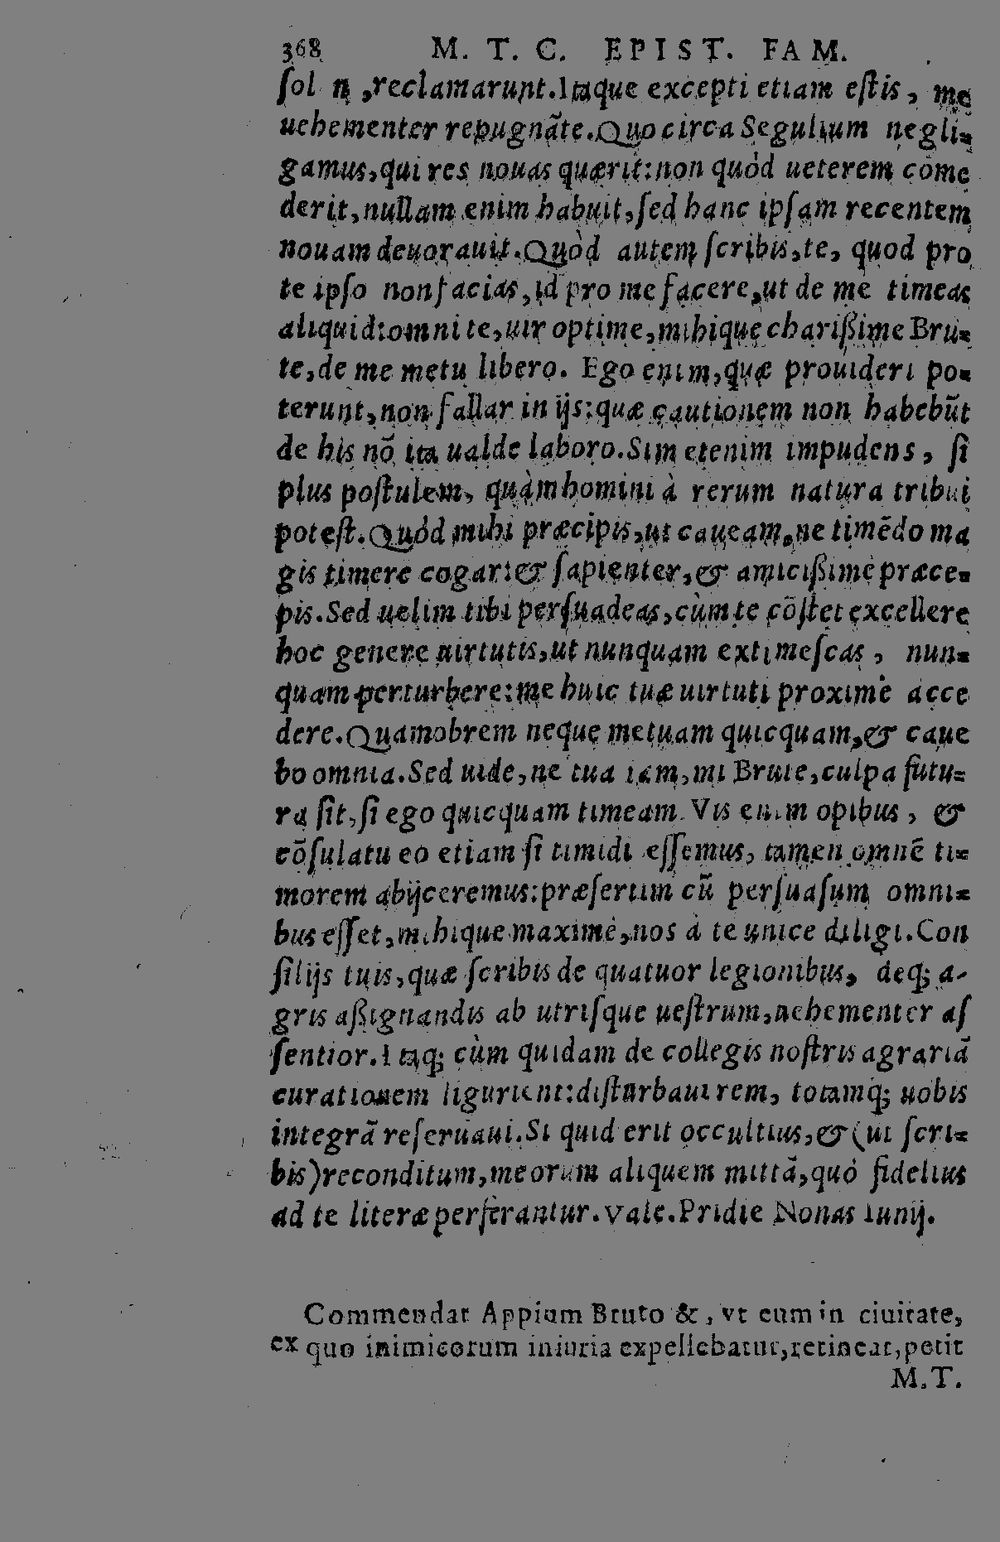 368 M. T. C. EPIST. FAM.
ſol n ,reclamarunt.Itaque excepti etiam eſtis, me
uehementer repugnãte.Quocirca Segulium negli=
gamus,qui res nouas quærit:non quòd ueterem come
derit,nullam enim habuit,ſed hanc ipſam recentem
nouam deuorauit.Quòd autem ſcribis,te, quod pro
te ipſo non facias,id pro me facere,ut de me timeas
aliquid:omni te,uir optime,mihique charißime Bru=
te,de me metu libero. Ego enim,quæ prouideri po=
terunt,non fallar in ijs:quæ cautionem non habebũt
de his nõ ita ualde laboro.Sim etenim impudens, ſi
plus poſtulem, quàm homini à rerum natura tribui
poteſt.Quòd mihi præcipis,ut caueam,ne timẽdo ma
gis timere cogar:& ſapienter,& amicißime præce=
pis.Sed uelim tibi perſuadeas,cùm te cõſtet excellere
hoc genere uirtutis,ut nunquam extimeſcas, nun=
quam perturbere:me huic tuæ uirtuti proximè acce
dere.Quamobrem neque metuam quicquam,& caue
bo omnia.Sed uide,ne tua iam,mi Brute,culpa futu=
ra ſit,ſi ego quicquam timeam. Vis enim opibus, &
cõſulatu eo etiam ſi timidi eſſemus, tamen omnẽ ti=
morem abijceremus:præſertim cũ perſuaſum omni=
bus eſſet,mihique maximè,nos à te unice diligi.Con
ſilijs tuis,quæ ſcribis de quatuor legionibus, deq; a-
gris aßignandis ab utriſque ueſtrum,uehementer aſ
ſentior.Itaq; cùm quidam de collegis noſtris agrariã
curationem ligurirent:diſturbaui rem, totamq; uobis
integrã reſeruaui.Si quid erit occultius,& (ut ſcri=
bis)reconditum,meorum aliquem mittã,quò fidelius
ad te literæ perferantur.Vale.Pridie Nonas Iunij.
Commendat Appium Bruto &, vt eum in ciuitate,
ex quo inimicorum iniuria expellebatur,retineat,petit
M.T.